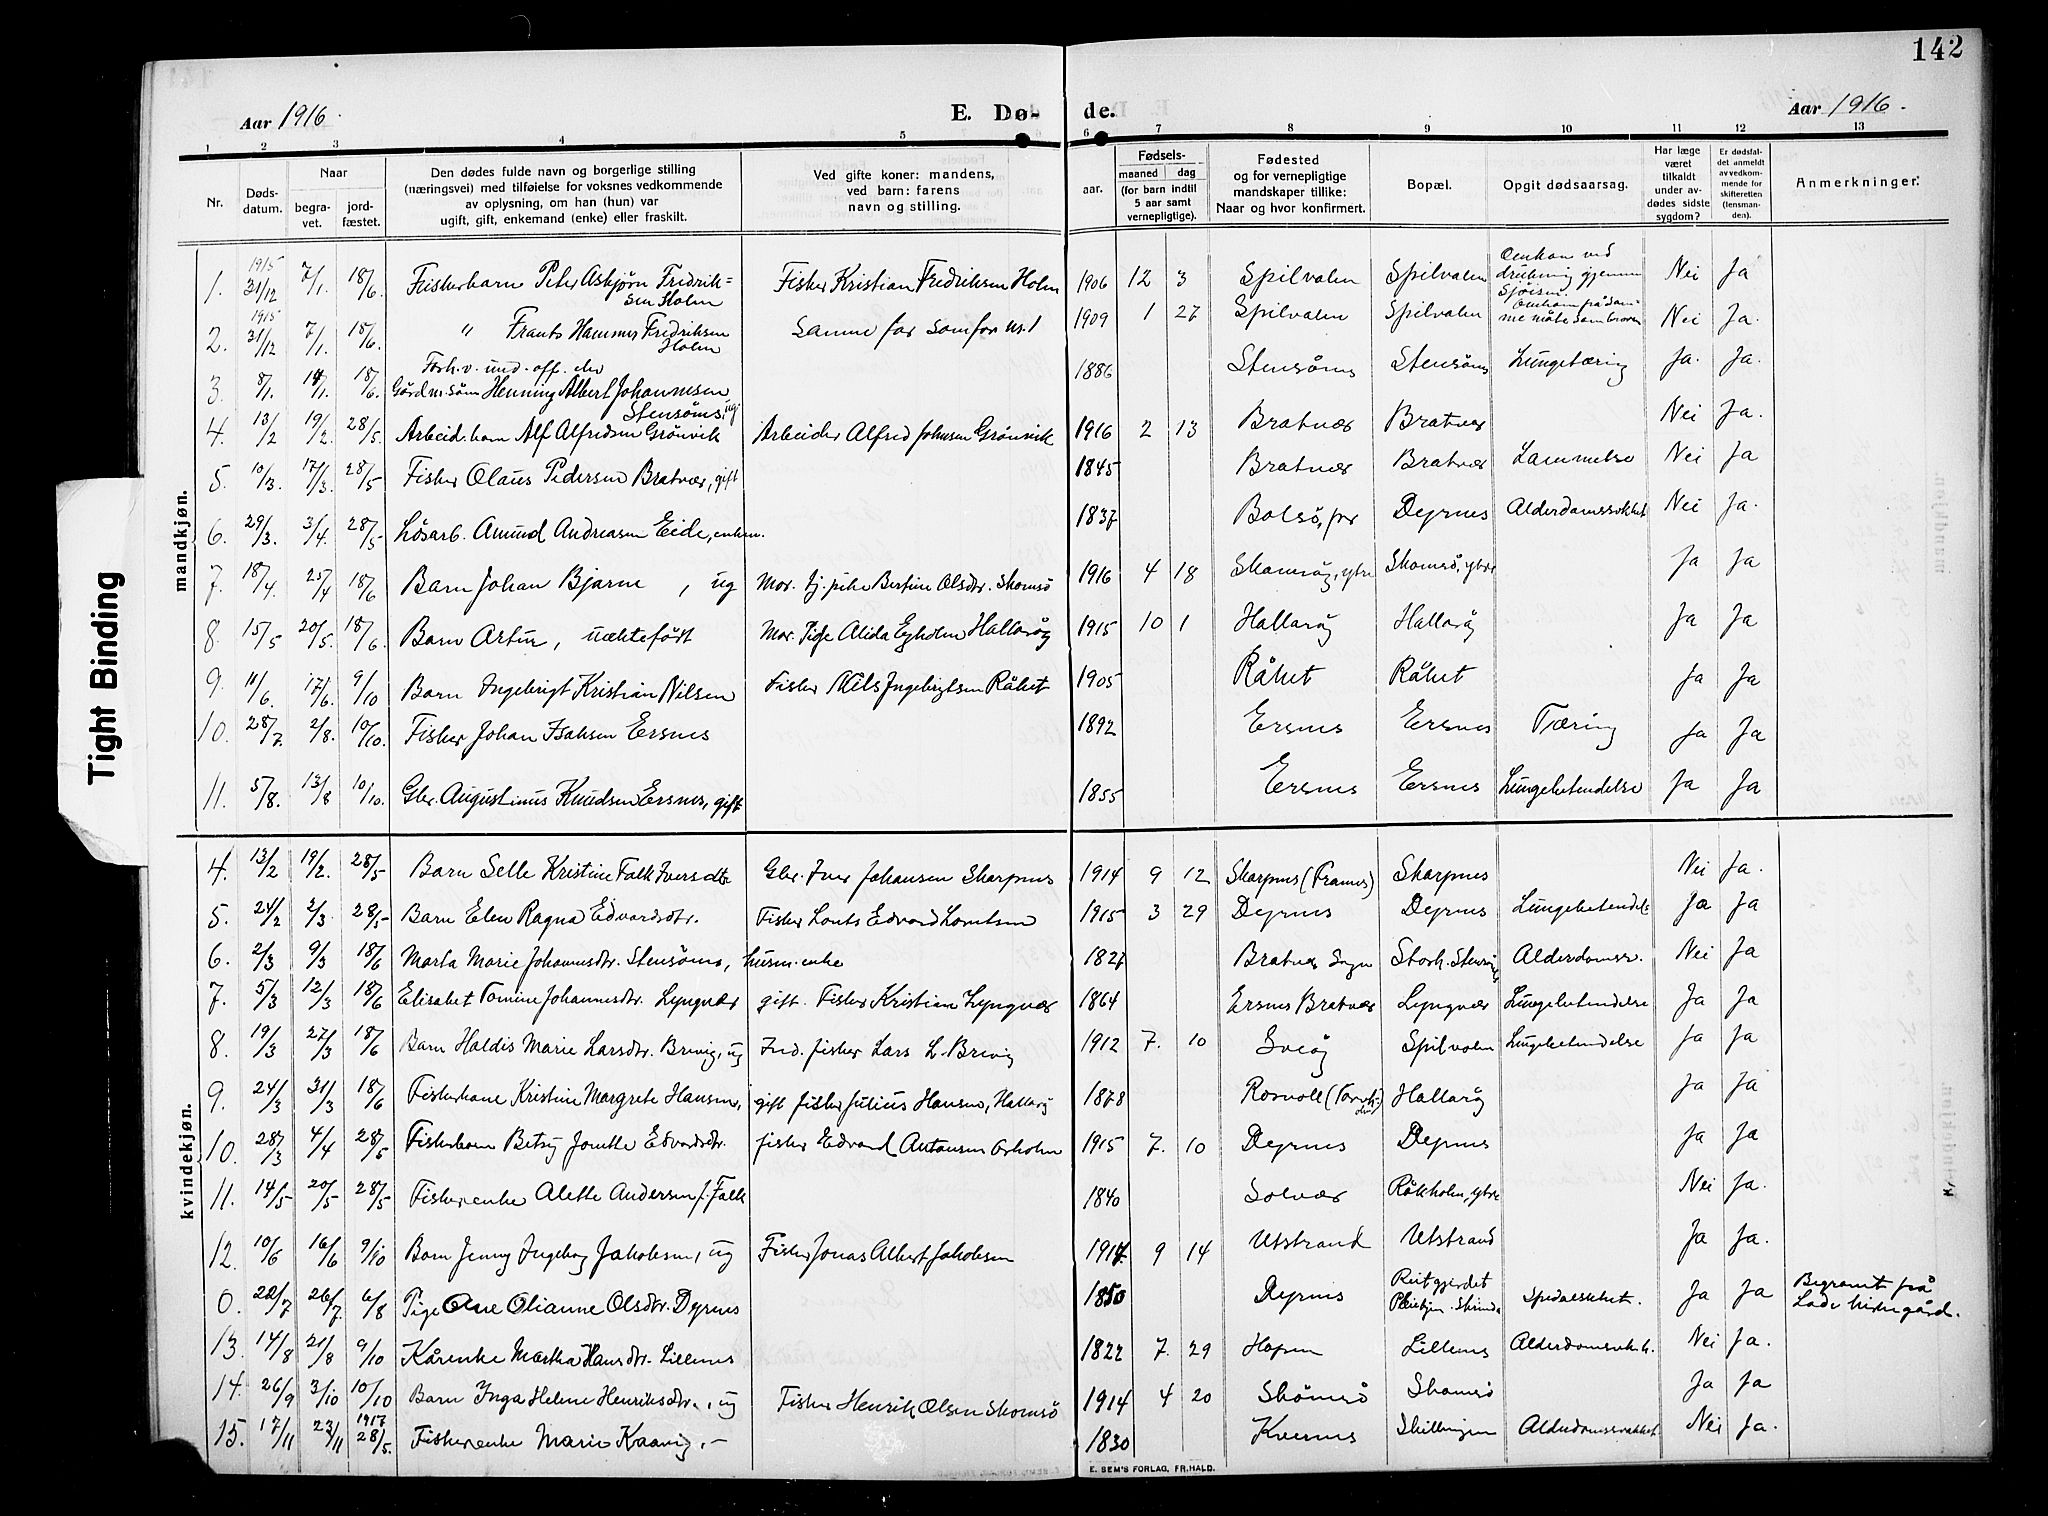 142
Aar 1916.
E. Dø-
de.
Aar 1916.
1 2 3 4 5 6 7 8 9 10 11 12 13
Nr.
Døds-
datum.
Naar
begra-
vet.
jord-
fæstet.
Den dødes fulde navn og borgerlige stilling
(næringsvei) med tilføielse for voksnes vedkommende
av oplysning, om han (hun) var
ugift, gift, enkemand (enke) eller fraskilt.
Ved gifte koner: mandens,
ved barn: farens
navn og stilling.
aar.
Fødsels-
maaned dag
(for barn indtil
5 aar samt
vernepligtige).
Fødested
og for vernepligtige
mandskaper tillike:
Naar og hvor konfirmert.
Bopæl.
Opgit dødsaarsag.
Har læge
været
tilkaldt
under av-
dødes sidste
sygdom?
Er dødsfal-
det anmeldt
av vedkom-
mende for
skifteretten
(lensman-
den).
Anmerkninger.
Tight Binding
mandkjøn.
1. 1915 31/12 7/1. 18/6. Fiskerbarn Peter Asbjørn Fredrik=
sen Holm Fisker Kristian Fredriksen Holm 1906 12 3 Spilvalen Spilvalen Omkom ved
drukning gjennem
Sjøisen. Nei Ja
2. 1915 31/12 7/1. 18/6. " Frants Hammer Fredriksen
Holm Samme far som for nr. 1 1909 1 27 Spilvalen Spilvalen Omkom på sam-
me måte som broren Nei Ja.
3. 8/1. 14/1. 18/6. Forh.v. und. off. elev
Gårdm.søn Henning Albert Johannesen
Stensøens, ug. 1886 Stensøens Stensøens Lungetæring Ja. Ja.
4. 13/2 19/2. 28/5. Arbeid.barn Alf Alfredsen Grønvik Arbeider Alfred Johnsen Grønvik 1916 2 13 Bratvær Bratvær Nei Ja.
5. 10/3. 17/3. 28/5 Fisker Olaus Pedersen Bratvær, gift 1845 Bratvær Bratvær Lammelse Nei Ja
6. 29/3. 3/4. 28/5 Løsarb. Amund Andreasen Eide, enkem. 1837 Bolsø, pr Dyrnes Alderdomssvakhet Nei Ja.
7. 18/4. 25/4 18/6 Barn Johan Bjarne , ug Mor. tj. pike Bertine Olsdtr. Skomsø 1916 4 18 Skomsøy, ytre Skomsø, ytre Ja Ja
8. 15/5 20/5. 18/6. Barn Artur, uektefødt Mor. Pige Alida Egholm Hallarøy 1915 10 1 Hallarøy Hallarøy Ja Ja
9. 11/6. 17/6. 9/10 Barn Ingebrigt Kristian Nilsen Fisker Nils Ingebrigtsen Råket 1905 Råket Råket Ja Ja
10. 28/7. 2/8. 10/10. Fisker Johan Isaksen Ersnes 1892 Ersnes Ersnes Tæring Ja Ja
11. 5/8. 13/8 10/10. Gbr. Augustinus Knudsen Ersnes, gift 1855 Ersnes Ersnes Lungebetendelse Ja Ja
kvindekjøn.
4. 13/2 19/2. 28/5 Barn Selle Kristine Falk Iversdtr Gbr. Iver Johansen Skarpnes 1914 9 12 Skarpnes (Framnes) Skarpnes Nei Ja.
5. 24/2 2/3 28/5 Barn Elen Ragna Edvardsdtr. Fisker Lonts Edvard Lorntsen 1915 3 29 Dyrnes Dyrnes Lungebetendels Ja Ja
6. 2/3 9/3 18/6 Marta Marie Johannesdtr. Stensøens, husm.enke 1827 Bratvær Sogn Stork. Stensø Alderdomssv. Nei Ja
7. 5/3 12/3 18/6 Elisabet Tomine Johannesdtr. Lyngvær gift. Fisker Kristian Lyngvær 1864 Ersnes Bratvær Lyngvær Lungebetendelse Ja Ja
8. 19/3 27/3 18/6 Barn Haldis Marie Larsdtr. Brevig, ug Ind. fisker Lars L. Brevig 1912 7. 10 Sveøy Spilvalen Lungebetendelse Ja Ja
9. 24/3 31/3 18/6 Fiskerkone Kristine Margrete Hansen, gift fisker Julius Hansen, Hallarøy 1878 Rosvoll Hallarøy Ja Ja
10. 28/3 4/4 28/5 Fiskerbarn Betsy Jomtle Edvardsdtr. fisker Edvard Antonsen Orholm 1915 7. 10 Dyrnes Dyrnes Ja Ja
11. 14/5 20/5 28/5 Fiskerenke Alette Andersen f. Falk 1840 Solvær Råkholm, ytre Nei Ja.
12. 10/6 16/6 9/10 Barn Jenny Ingeborg Jakobsen, ug Fisker Jonas Albert Jakobsen 1914 9 14 Utstrand Utstrand Ja Ja.
0. 20/7 26/7. 6/8 Pige Ane Olianne Olsdtr. Dyrnes 1850 Dyrnes Reitgjerdet
Pleiehjem. Strinda Spedalskhet. Ja Ja Begravet på
Lade kirkegård.
13. 14/8 21/8 9/10 Kårenke Martha Hansdtr. Lillenes 1822 7. 29 Hopen Lillenes Alderdomsvkh. Nei Ja.
14. 26/9 3/10 10/10 Barn Inga Helene Henriksdtr., ug Fisker Henrik Olsen Skomsø 1914 4 20 Skomsø Skomsø Ja Ja
15. 17/11 23/11 1917 28/5. Fiskerenke Marie Kaavig. - 1830 Kvernes Skillingen Alderdomssvakhet. Nei Ja.
E. SEM'S FORLAG, FR.HALD.